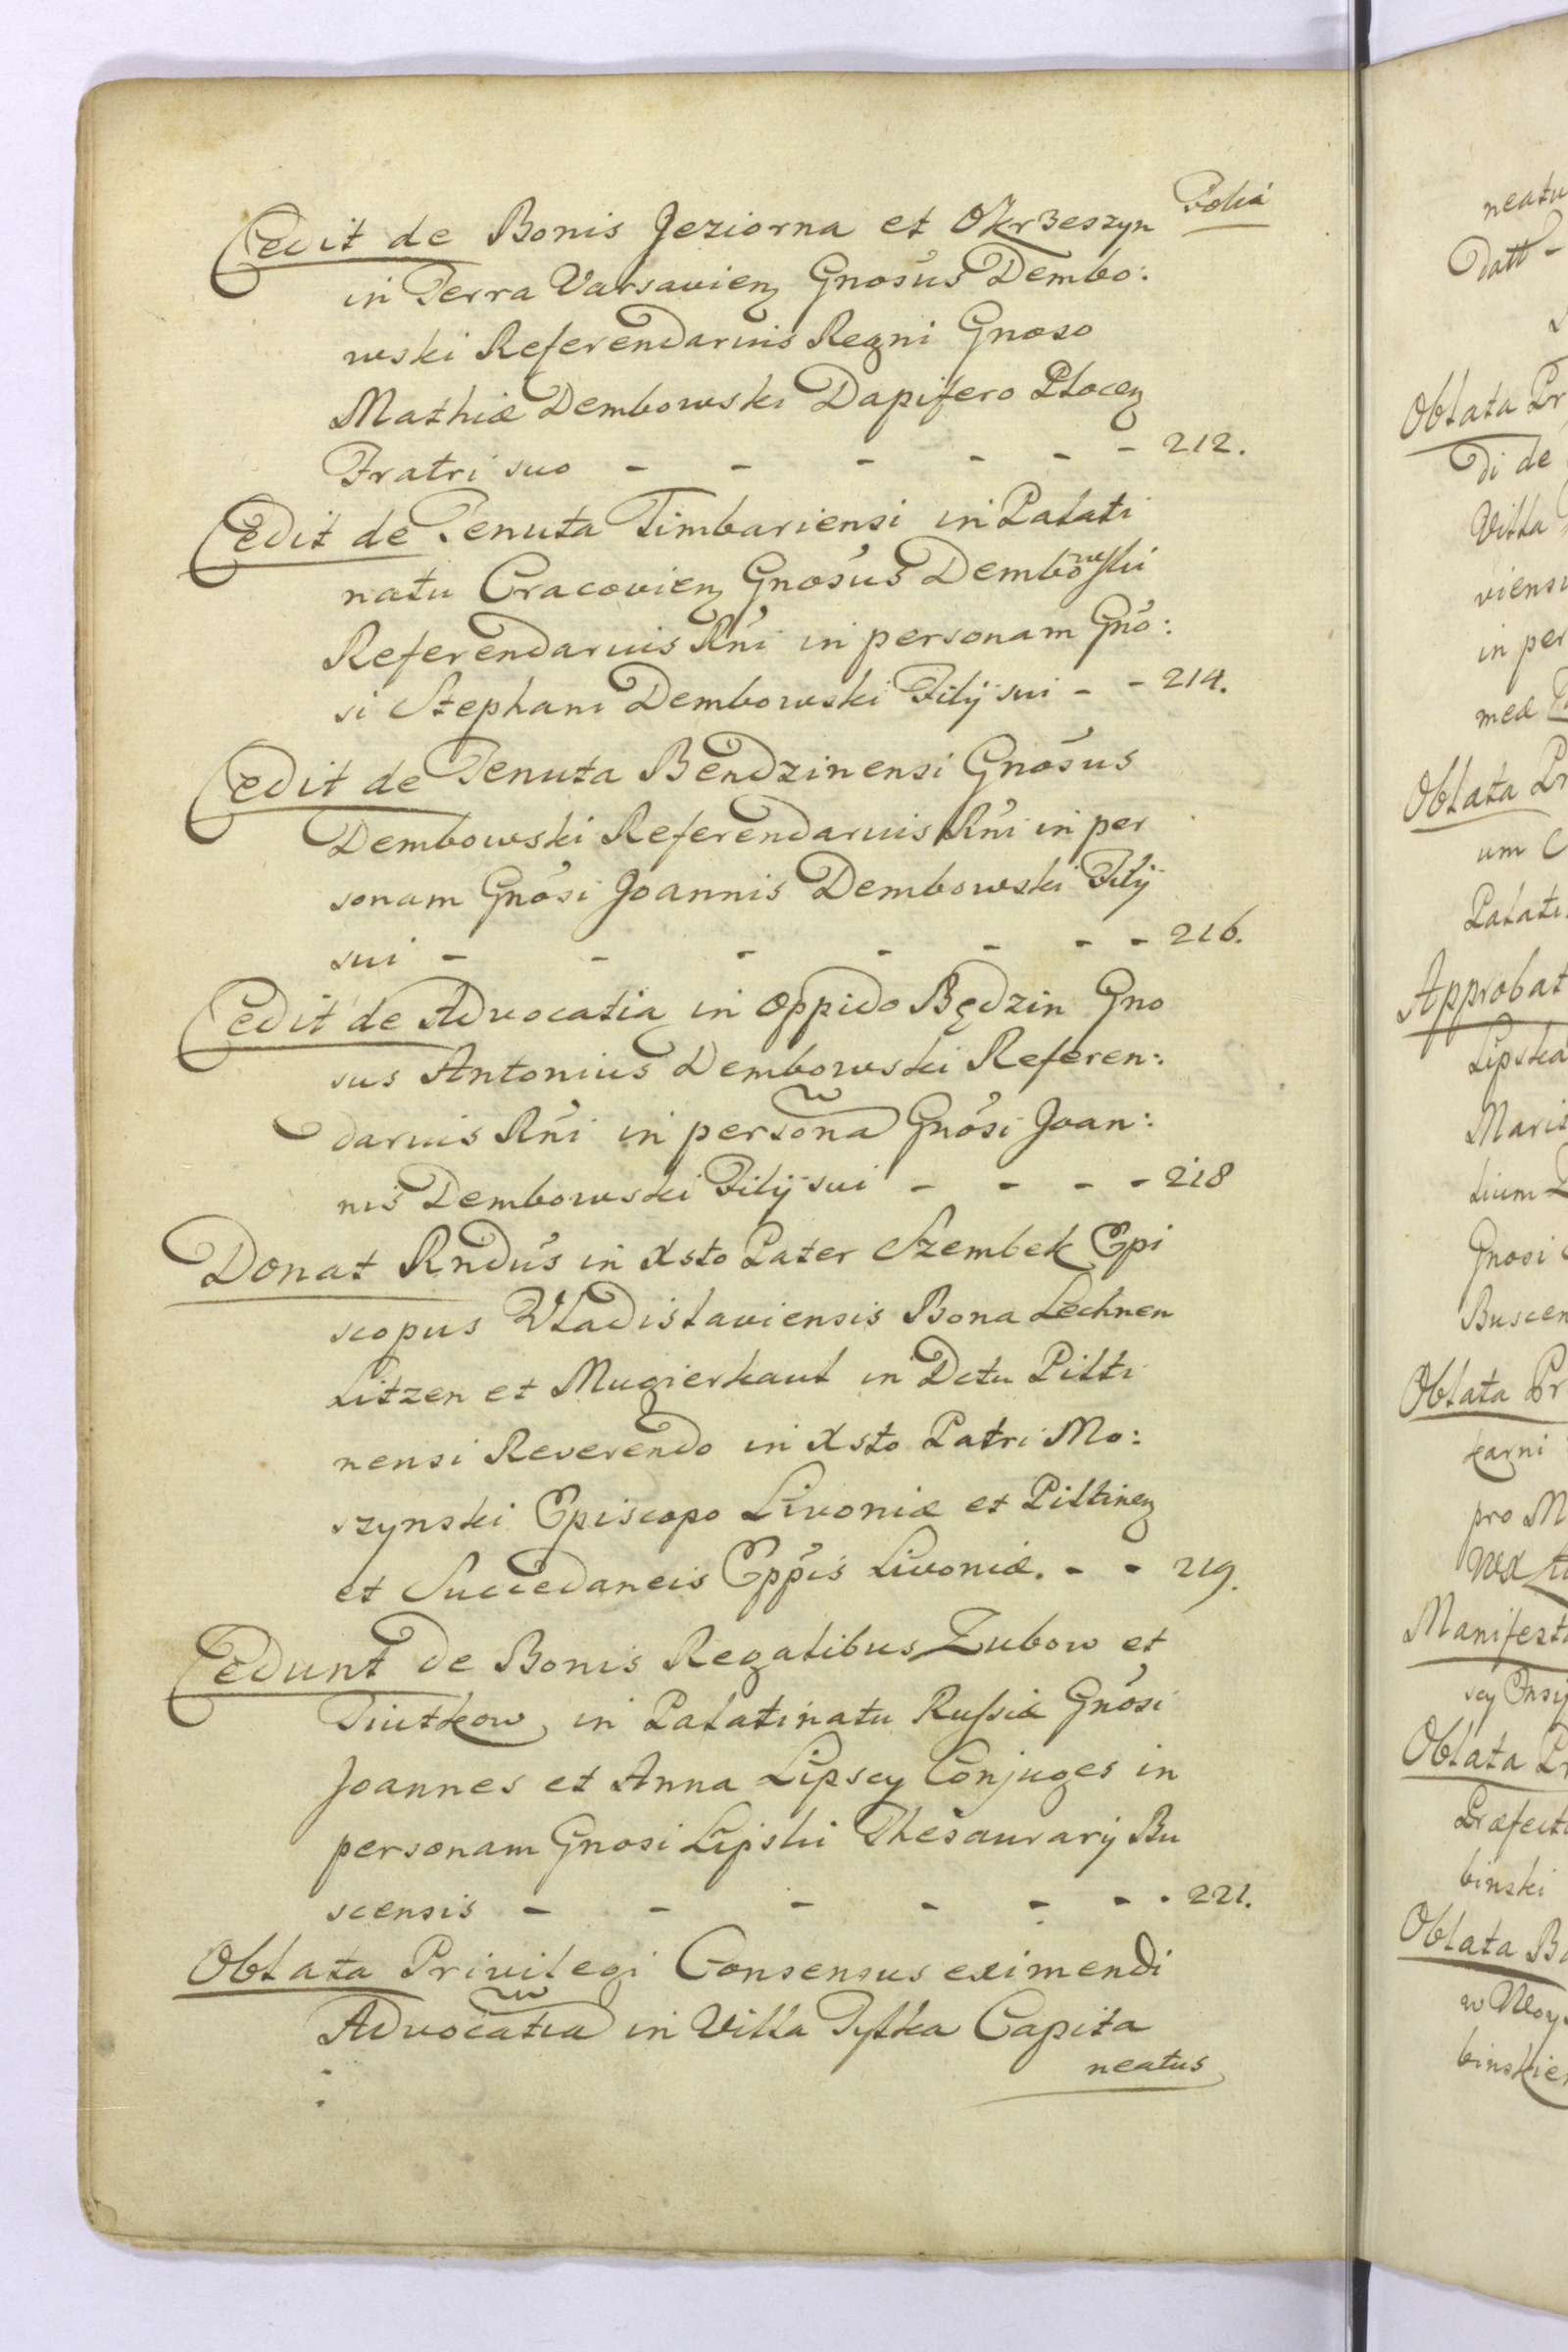 Folia
Cedit de Bonis Jeziorna et Okrzeszyn
in Terra Varsavienȝ Gnosus Dembo:
wski Referendarius Regni Gnoso
Mathiæ Dembowski Dapifero Plocenȝ
Fratri suo - - - - - - 212.
Cedit de Tenuta Timbariensi in Palati
natu Cracovienȝ Gnosus Dembowski
Referendarius Rni in personam Gno:
si Stephani Dembowski Filij sui - - 214.
Cedit de Tenuta Bendzinensi Gnosus
Dembowski Referendarius Rni in per
sonam Gnosi Joannis Dembowski Filij
sui - - - - - - - 216.
Cedit de Advocatia in Oppido Będzin Gno
sus Antonius Dembowski Referen:
darius Rni in persona Gnosi Joan:
nis Dembowski Filij sui - - - - 218
Donat Rndus in Xsto Pater Szembek Epi
scopus Vladislaviensis Bona Lechnen
Litzen et Mugierkaul in Dctu Pilti
nensi Reverendo in Xsto Patri Mo:
szynski Episcopo Livoniæ et Piltinenȝ
et Succedaneis Eppis Livoniæ. - - 219.
Cedunt de Bonis Regalibus Zubow et
Tiutkow, in Palatinatu Russiæ Gnosi
Joannes et Anna Lipscy Conjuges in
personam Gnosi Lipski Thesaurarij Bu
scensis - - - - - - . 221.
Oblata Privilegi Consensus eximendi
Advocatia in Villa Capita
neatus
neatu
Datt -
Oblata Pr
di de
Villa
viensi
in per
med
Oblata Pr
um C
Palati
Approbat
Lipska
Marit
lium
Gnosi
Buscen
Oblata Pr
pro M
Manifesta
Oblata Pr
Præfect
binski
Oblata
binskie